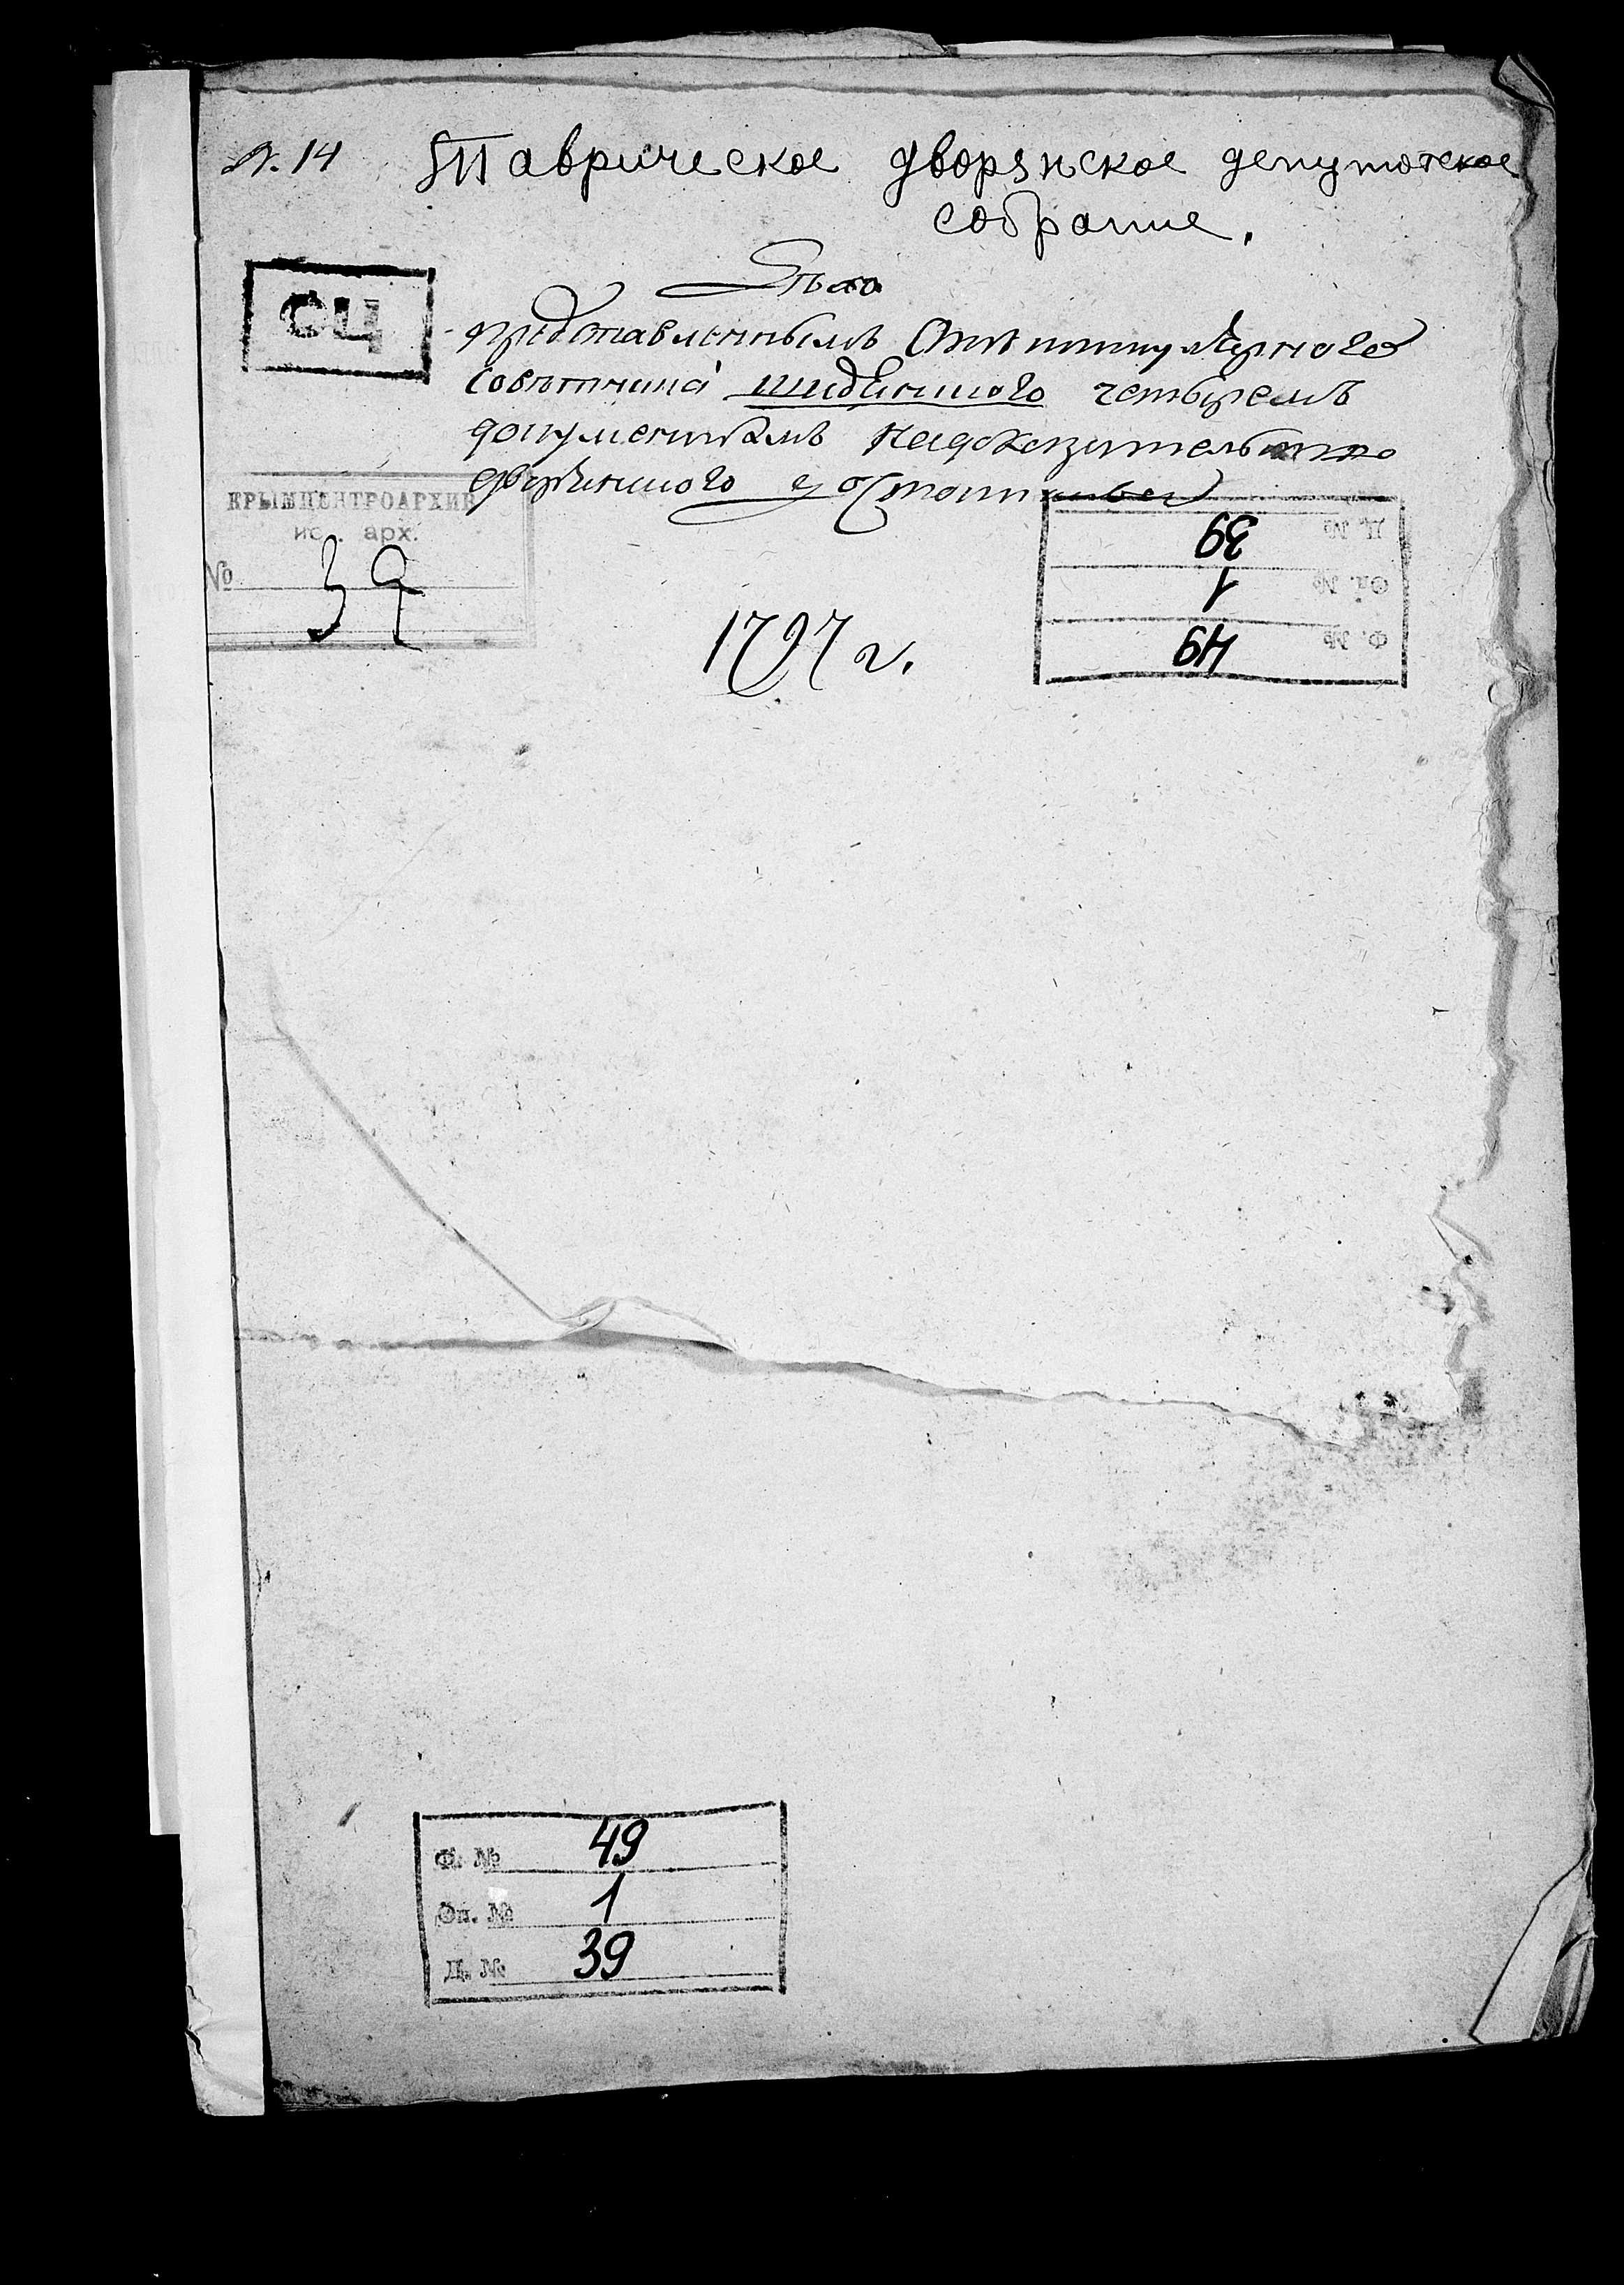 N. 14 Таврическое дворянское депутатское
собрание.
Дѣло
СЦ
представленнымъ Отъ титулярного
совѣтника четыремъ
документамъ
дворянского достоинства
КРЫМЦЕНТРОАРХИВ
ис. арх.
№ 39
Д. № 39
Оп. № 1
Ф. № 49
1797 г.
Ф. № 49
Оп. № 1
Д. № 39